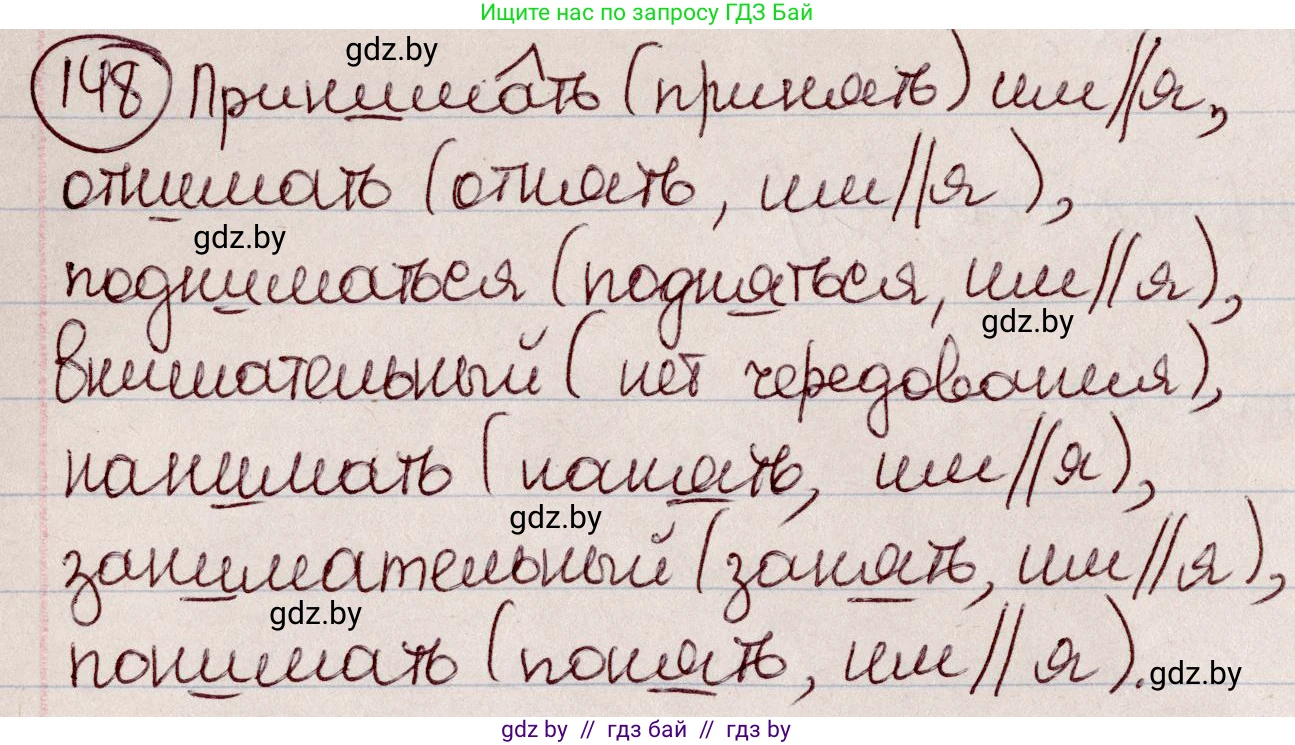 Ищите нас по запросу ГДЗ Бай
gdz.by
148 Принимать (принять) им//я,
отнимать (отнять, им//я),
gdz.by
подниматься (подняться, им//я),
gdz.by
внимательный (нет чередования),
нанимать (нанять, им//я),
gdz.by
занимательный (занять, им//я),
gdz.by
понимать (понять, им//я).
gdz.by
gdz by // гдз бай // гдз by